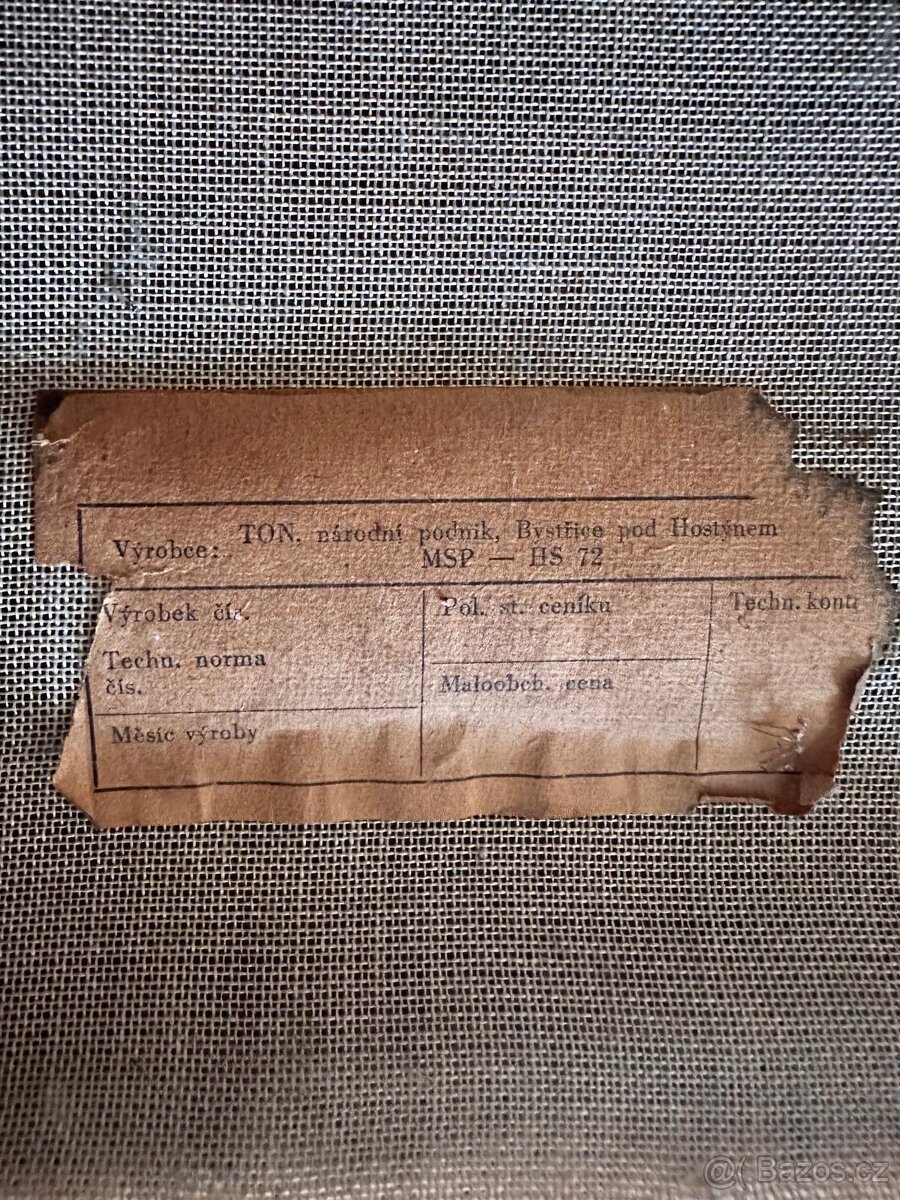 Výrobce: TON, národní podnik, Bystřice pod Hostýnem
MSP — HS 72
Výrobek čís.
Techn. norma
čís.
Měsíc výroby
Pol. st. ceníku
Maloobch. cena
Techn. kont
@( Bazos.cz